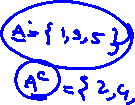 A = {1,3,5}
Aᶜ = {2,4,